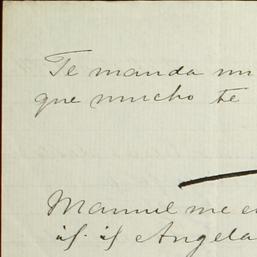 Te manda un
que mucho te
Manuel me en
Angela